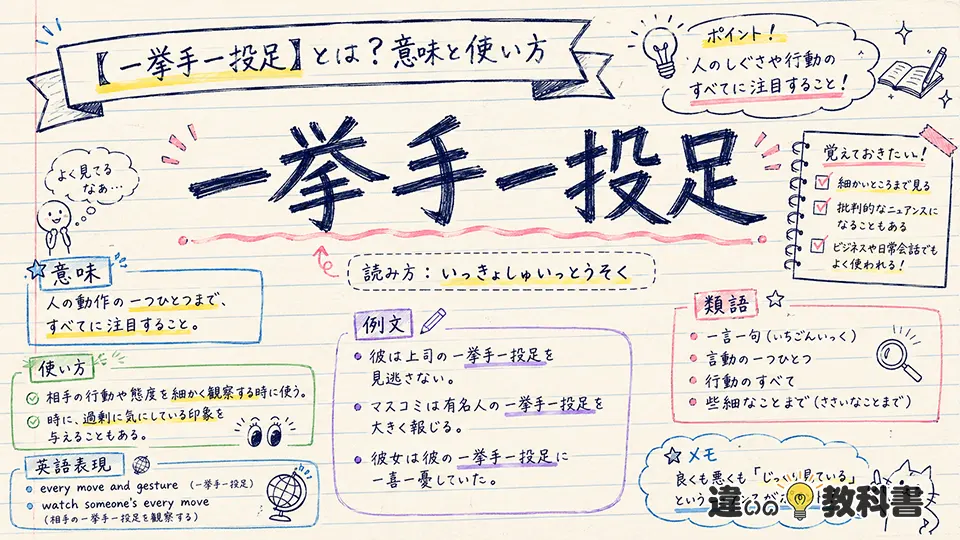 【一挙手一投足】とは？意味と使い方
ポイント！
人のしぐさや行動の
すべてに注目すること！
よく見てる
なぁ…
一挙手一投足
読み方：いっきょしゅいっとうそく
覚えておきたい！
細かいところまで見る
批判的なニュアンスに
なることもある
ビジネスや日常会話でも
よく使われる！
意味
人の動作の一つひとつまで、
すべてに注目すること。
使い方
相手の行動や態度を細かく観察する時に使う。
時に、過剰に気にしている印象を
与えることもある。
英語表現
every move and gesture （一挙手一投足）
watch someone's every move
（相手の一挙手一投足を観察する）
例文
彼は上司の一挙手一投足を
見逃さない。
マスコミは有名人の一挙手一投足を
大きく報じる。
彼女は彼の一挙手一投足に
一喜一憂していた。
類語
一言一句（いちごんいっく）
言動の一つひとつ
行動のすべて
些細なことまで（ささいなことまで）
メモ
良くも悪くも「じっくり見ている」
という
違いの教科書